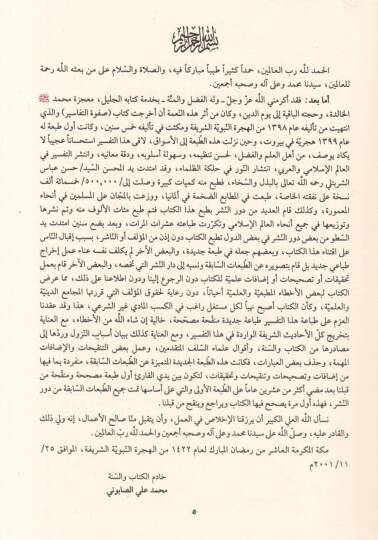 بسم الله الرحمن الرحيم
الحمد لله رب العالمين، حمداً كثيراً طيباً مباركاً فيه، والصلاة والسلام على من بعثه الله رحمة
للعالمين، سيدنا محمد وعلى آله وصحبه أجمعين.
أما بعد: فقد أكرمني الله عز وجل ـ وله الفضل والمنّة ـ بخدمة كتابه الجليل، معجزة محمد ﷺ
الخالدة، وحجته الباقية إلى يوم الدين، وكان من أثر هذه النعمة أن أخرجت كتاب (صفوة التفاسير) والذي
انتهيت من تأليفه عام ١٣٩٨ من الهجرة النبوية الشريفة ومكثت في تأليفه خمس سنين، وكانت أول طبعة له
عام ١٣٩٩ هجرية في بيروت، وحين نزلت هذه الطبعة إلى الأسواق، لاقى هذا التفسير استحساناً عجيباً لا
يكاد يوصف، من أهل العلم والفضل، لحسن تنظيمه، وسهولة أسلوبه، ودقة معانيه، وانتشر التفسير في
العالم الإسلامي والعربي، انتشار النور في حلكة الظلماء، وقد امتدت يد المحسن السيد/حسن عباس
الشربتلي رحمه الله تعالى بالبذل والسخاء، فطبع منه كميات كبيرة وصلت إلى/٥٠٠,٠٠٠/ خمسمائة ألف
نسخة على نفقته الخاصة، طبعت في المطابع الضخمة في ألمانيا، ووزعت بالمجان على المسلمين في أنحاء
المعمورة، وكذلك قام العديد من دور النشر بطبع هذا الكتاب فتم طبع مئات الألوف منه وتم نشرها
وتوزيعها في جميع أنحاء العالم الإسلامي وتكررت طباعته عشرات المرات، وبعد بضع سنين امتدت يد
السطو من بعض دور النشر في بعض الدول تطبع الكتاب دون إذن من المؤلف أو الناشر؛ بسبب إقبال الناس
على اقتناء هذا الكتاب، وبعضهم جعله في طبعة جديدة، والبعض الآخر لم يكلف نفسه عناء عمل إخراج
طباعي جديد بل قام بتصويره عن الطبعات السابقة ونسبه إلى دار النشر التي تخصه، والبعض الآخر قام بعمل
تحقيقات أو تصحيحات أو إضافات علمية للكتاب دون الرجوع إلينا ودون اطلاعنا على ذلك، ما عرض
الكتاب لبعض الأخطاء المطبعية والعلمية أحياناً، دون رعاية لحقوق المؤلف التي قررتها المجامع الدينية
والعلمية، وكأن الكتاب أصبح نهباً لكل مستغل راغب في الكسب المادي غير الشرعي، هذا وقد عقدنا
العزم على طباعة هذا التفسير طباعة جديدة منقحة مصححة، خالية إن شاء الله من الأخطاء، مع العناية
بتخريج كل الأحاديث الشريفة الواردة في هذا التفسير، ومع العناية كذلك ببيان أسباب النزول وردها إلى
مصادرها من الكتاب والسنة، وأقوال علماء السلف المتقدمين، وعمل بعض التنقيحات والإضافات
المهمة، وحذف بعض العبارات، فكانت هذه الطبعة الجديدة المتميزة عن الطبعات السابقة، منفردة بما فيها
من إضافات وتصحيحات وتنقيحات وتحقيقات، لتكون بين يدي القارئ أول طبعة مصححة ومنقحة من
قبلنا بعد مضي أكثر من عشرين عاماً على الطبعة الأولى والتي على أساسها تمت جميع الطبعات السابقة من دور
النشر، فهذه أول مرة يصحح فيها الكتاب ويراجع وينقح من قبلنا.
نسأل الله العلي الكبير أن يرزقنا الإخلاص في العمل، وأن يتقبل منّا صالح الأعمال، إنه ولي ذلك
والقادر عليه، وصلّى الله على سيدنا محمد وعلى آله وصحبه أجمعين والحمد لله رب العالمين.
مكة المكرمة العاشر من رمضان المبارك لعام ١٤٢٢ من الهجرة النبوية الشريفة، الموافق ٢٥/
١١/٢٠٠١م
خادم الكتاب والسنة
محمد علي الصابوني
٥